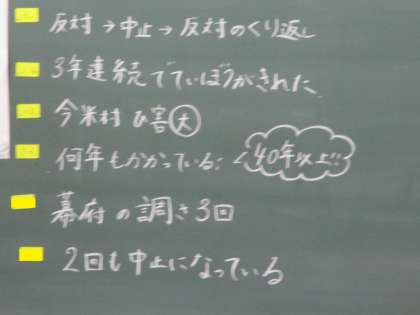 反対→中止→反対のくり返し
3年連続でていぼうがきれた
今米村ひ害大
何年もかかっている! 40年以上!!
幕府の調さ3回
2回も中止になっている